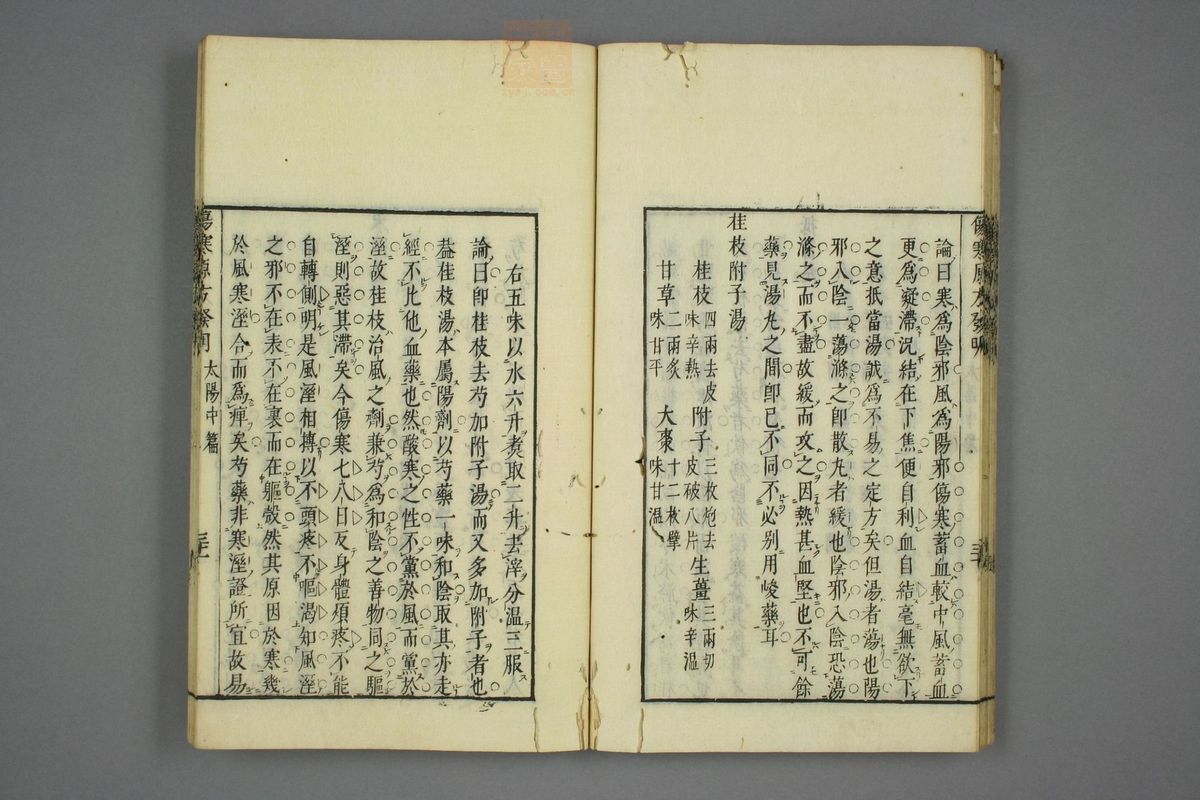 論曰寒爲陰邪風爲陽邪傷寒蓄血較中風蓄血
更爲凝滯況結在下焦便自利血自結毫無欲下
之意抵當湯誠爲不易之定方矣但湯者蕩也陽
邪入陰一蕩滌之卽散丸者緩也陰邪入陰恐蕩
滌之而不盡故緩而攻之因熱甚血堅也不可餘
藥見湯丸之間卽已不同不必别用峻藥耳
桂枝附子湯
桂枝四兩去皮味辛熱 附子三枚炮去皮破八片 生薑三兩切味辛溫
甘草二兩炙味甘平 大棗十二枚擘味甘溫
右五味以水六升煑取二升去滓分温三服
論曰卽桂枝去芍加附子湯而又多加附子者也
葢桂枝湯本屬陽劑以芍藥一味和陰取其亦走
經不比他血藥也然酸寒之性不黨於風而黨於
溼故桂枝治風之劑兼芍爲和陰之善物同之驅
溼則惡其滯矣今傷寒七八日反身體煩疼不能
自轉側明是風溼相搏以不頭疼不嘔渴知風溼
之邪不在表不在裏而在軀殼然其原因於寒幾
於風寒溼合而爲痺矣芍藥非寒溼證所宜故易
太陽中篇
三十一